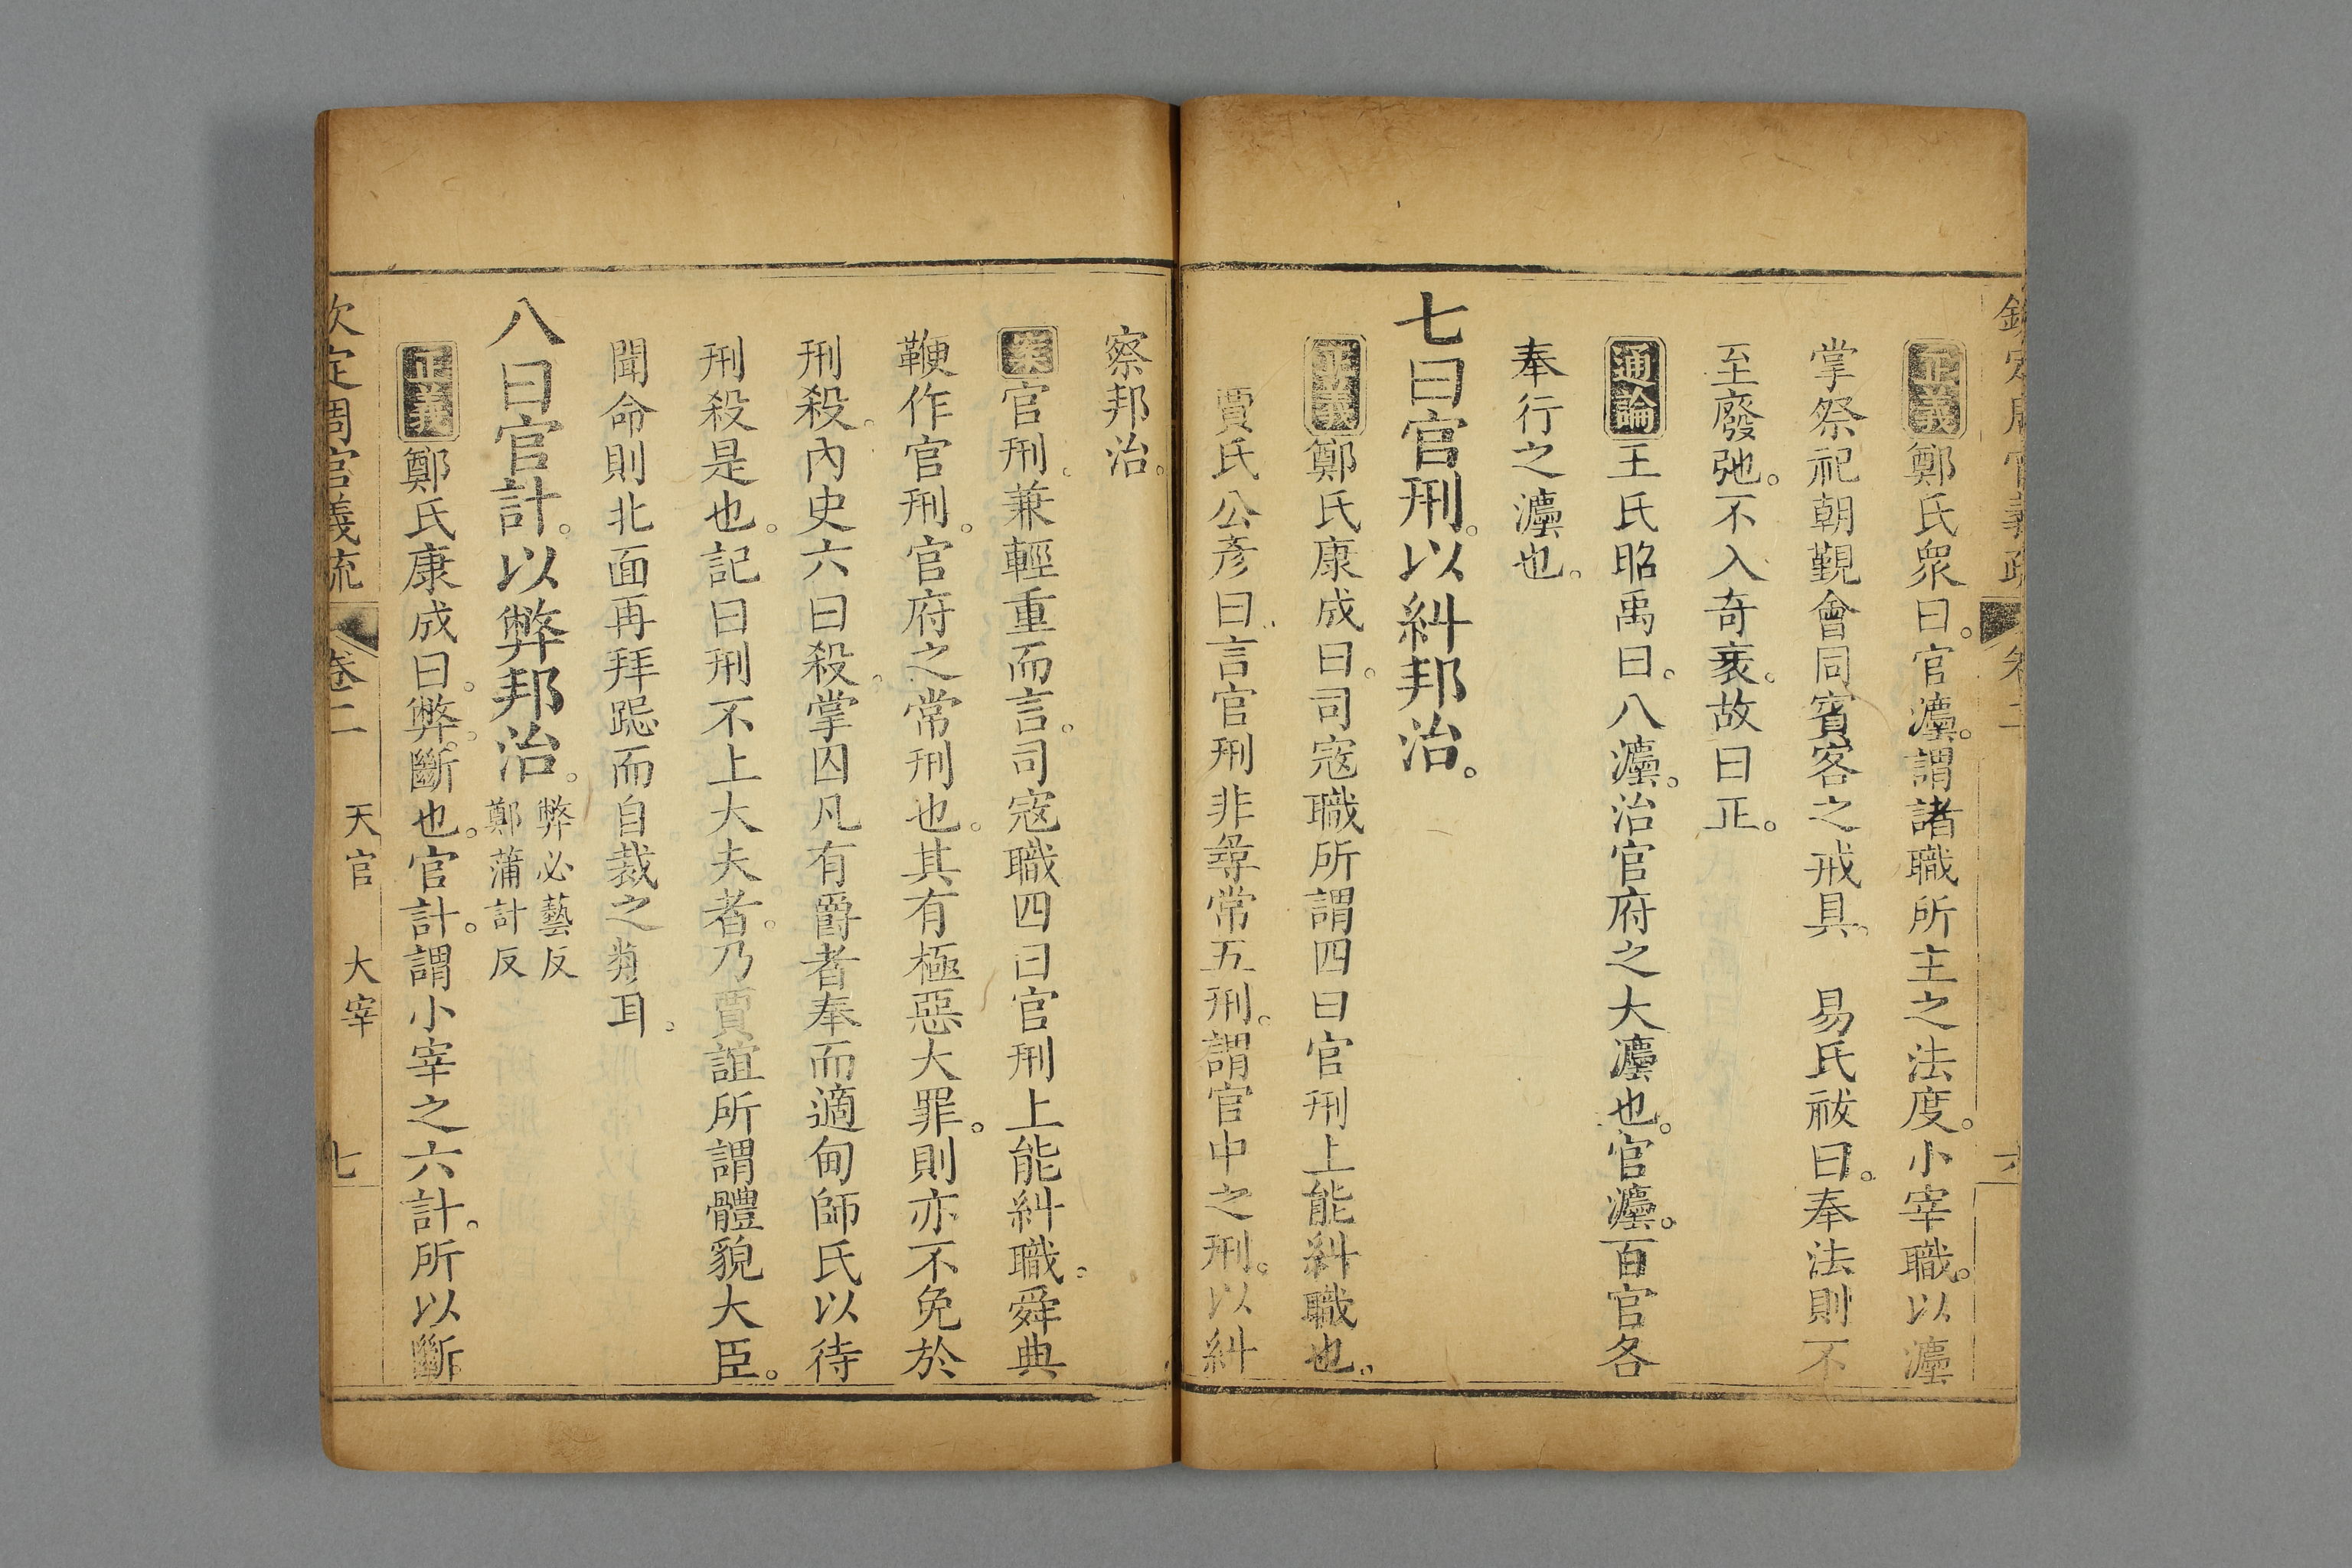 欽定周官義疏 卷二 六
正義鄭氏衆曰。官灋。謂諸職所主之法度。小宰職。以灋
掌祭祀朝覲會同賓客之戒具。 易氏祓曰。奉法則不
至廢弛。不入奇衺。故曰正。
通論王氏昭禹曰。八灋。治官府之大灋也。官灋。百官各
奉行之灋也。
七曰官刑。以糾邦治。
正義鄭氏康成曰。司寇職所謂四曰官刑上能糾職也。
賈氏公彥曰言官刑非尋常五刑。謂官中之刑。以糾
察邦治。
案官刑。兼輕重而言。司寇職四曰官刑上能糾職。舜典
鞭作官刑。官府之常刑也。其有極惡大罪。則亦不免於
刑殺。內史六曰殺。掌囚凡有爵者奉而適甸師氏以待
刑殺是也。記曰刑不上大夫者。乃賈誼所謂體貌大臣。
聞命則北面再拜跽而自裁之類耳。
八曰官計。以弊邦治。弊必藝反
鄭蒲計反
正義鄭氏康成曰。弊。斷也。官計。謂小宰之六計。所以斷
欽定周官義疏 卷二 天官 大宰 七